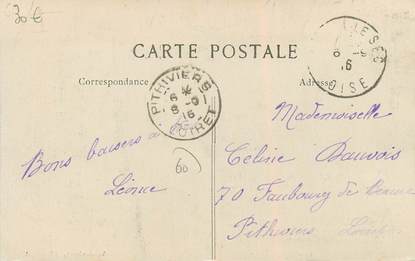 30 €
CARTE POSTALE
Correspondance
PITHIVIERS
6 *
8 -9
16
LOIRET
8 -9
16
OISE
Mademoiselle
Céline Dauvois
70 Faubourg de
Pithiviers Loiret
Bons baisers à
Léonie
60